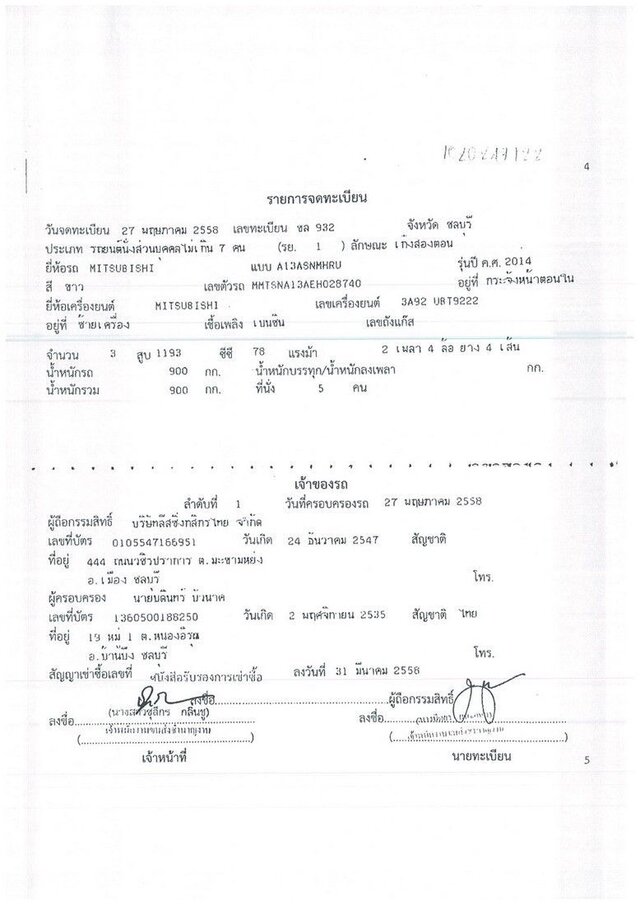 4
รายการจดทะเบียน
วันจดทะเบียน 27 พฤษภาคม 2558 เลขทะเบียน ขล 932 จังหวัด ชลบุรี
ประเภท รถยนต์นั่งส่วนบุคคลไม่เกิน 7 คน (รย. 1 ) ลักษณะ เก๋งสองตอน
ยี่ห้อรถ MITSUBISHI แบบ A13ASNMHRU รุ่นปี ค.ศ. 2014
สี ขาว เลขตัวรถ MMTSNA13AEH028740 อยู่ที่ กระจังหน้าตอนใน
ยี่ห้อเครื่องยนต์ MITSUBISHI เลขเครื่องยนต์ 3A92 UBT9222
อยู่ที่ ซ้ายเครื่อง เชื้อเพลิง เบนซิน เลขถังแก๊ส
จำนวน 3 สูบ 1193 ซีซี 78 แรงม้า 2 เพลา 4 ล้อ ยาง 4 เส้น
น้ำหนักรถ 900 กก. น้ำหนักบรรทุก/น้ำหนักลงเพลา กก.
น้ำหนักรวม 900 กก. ที่นั่ง 5 คน
เจ้าของรถ
ลำดับที่ 1 วันที่ครอบครองรถ 27 พฤษภาคม 2558
ผู้ถือกรรมสิทธิ์ บริษัทลีสซิ่งกสิกรไทย จำกัด
เลขที่บัตร 0105547166951 วันเกิด 24 ธันวาคม 2547 สัญชาติ
ที่อยู่ 444 ถนนวชิรปราการ ต.มะขามหย่ง
อ.เมือง ชลบุรี โทร.
ผู้ครอบครอง นายบดินทร์ บัวนาค
เลขที่บัตร 1360500188250 วันเกิด 2 พฤศจิกายน 2535 สัญชาติ ไทย
ที่อยู่ 19 หมู่ 1 ต.หนองอิรุณ
อ.บ้านบึง ชลบุรี โทร.
สัญญาเช่าซื้อเลขที่ หนังสือรับรองการเช่าซื้อ ลงวันที่ 31 มีนาคม 2558
ลงชื่อ ผู้ถือกรรมสิทธิ์
ลงชื่อ ลงชื่อ
เจ้าพนักงานขนส่งชำนาญงาน
เจ้าหน้าที่ นายทะเบียน
5